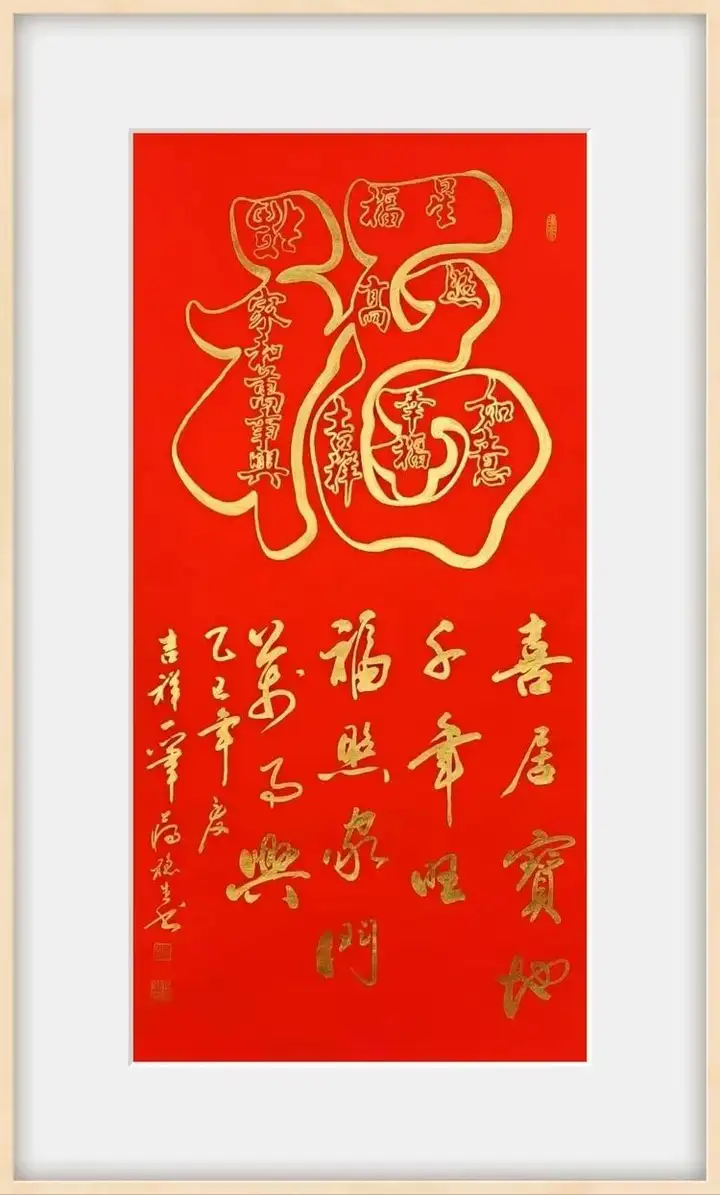 福
福星高照
家和萬事興
吉祥如意
幸福
喜居寶地
千年旺
福照家門
萬事興
乙巳年度
吉祥一筆